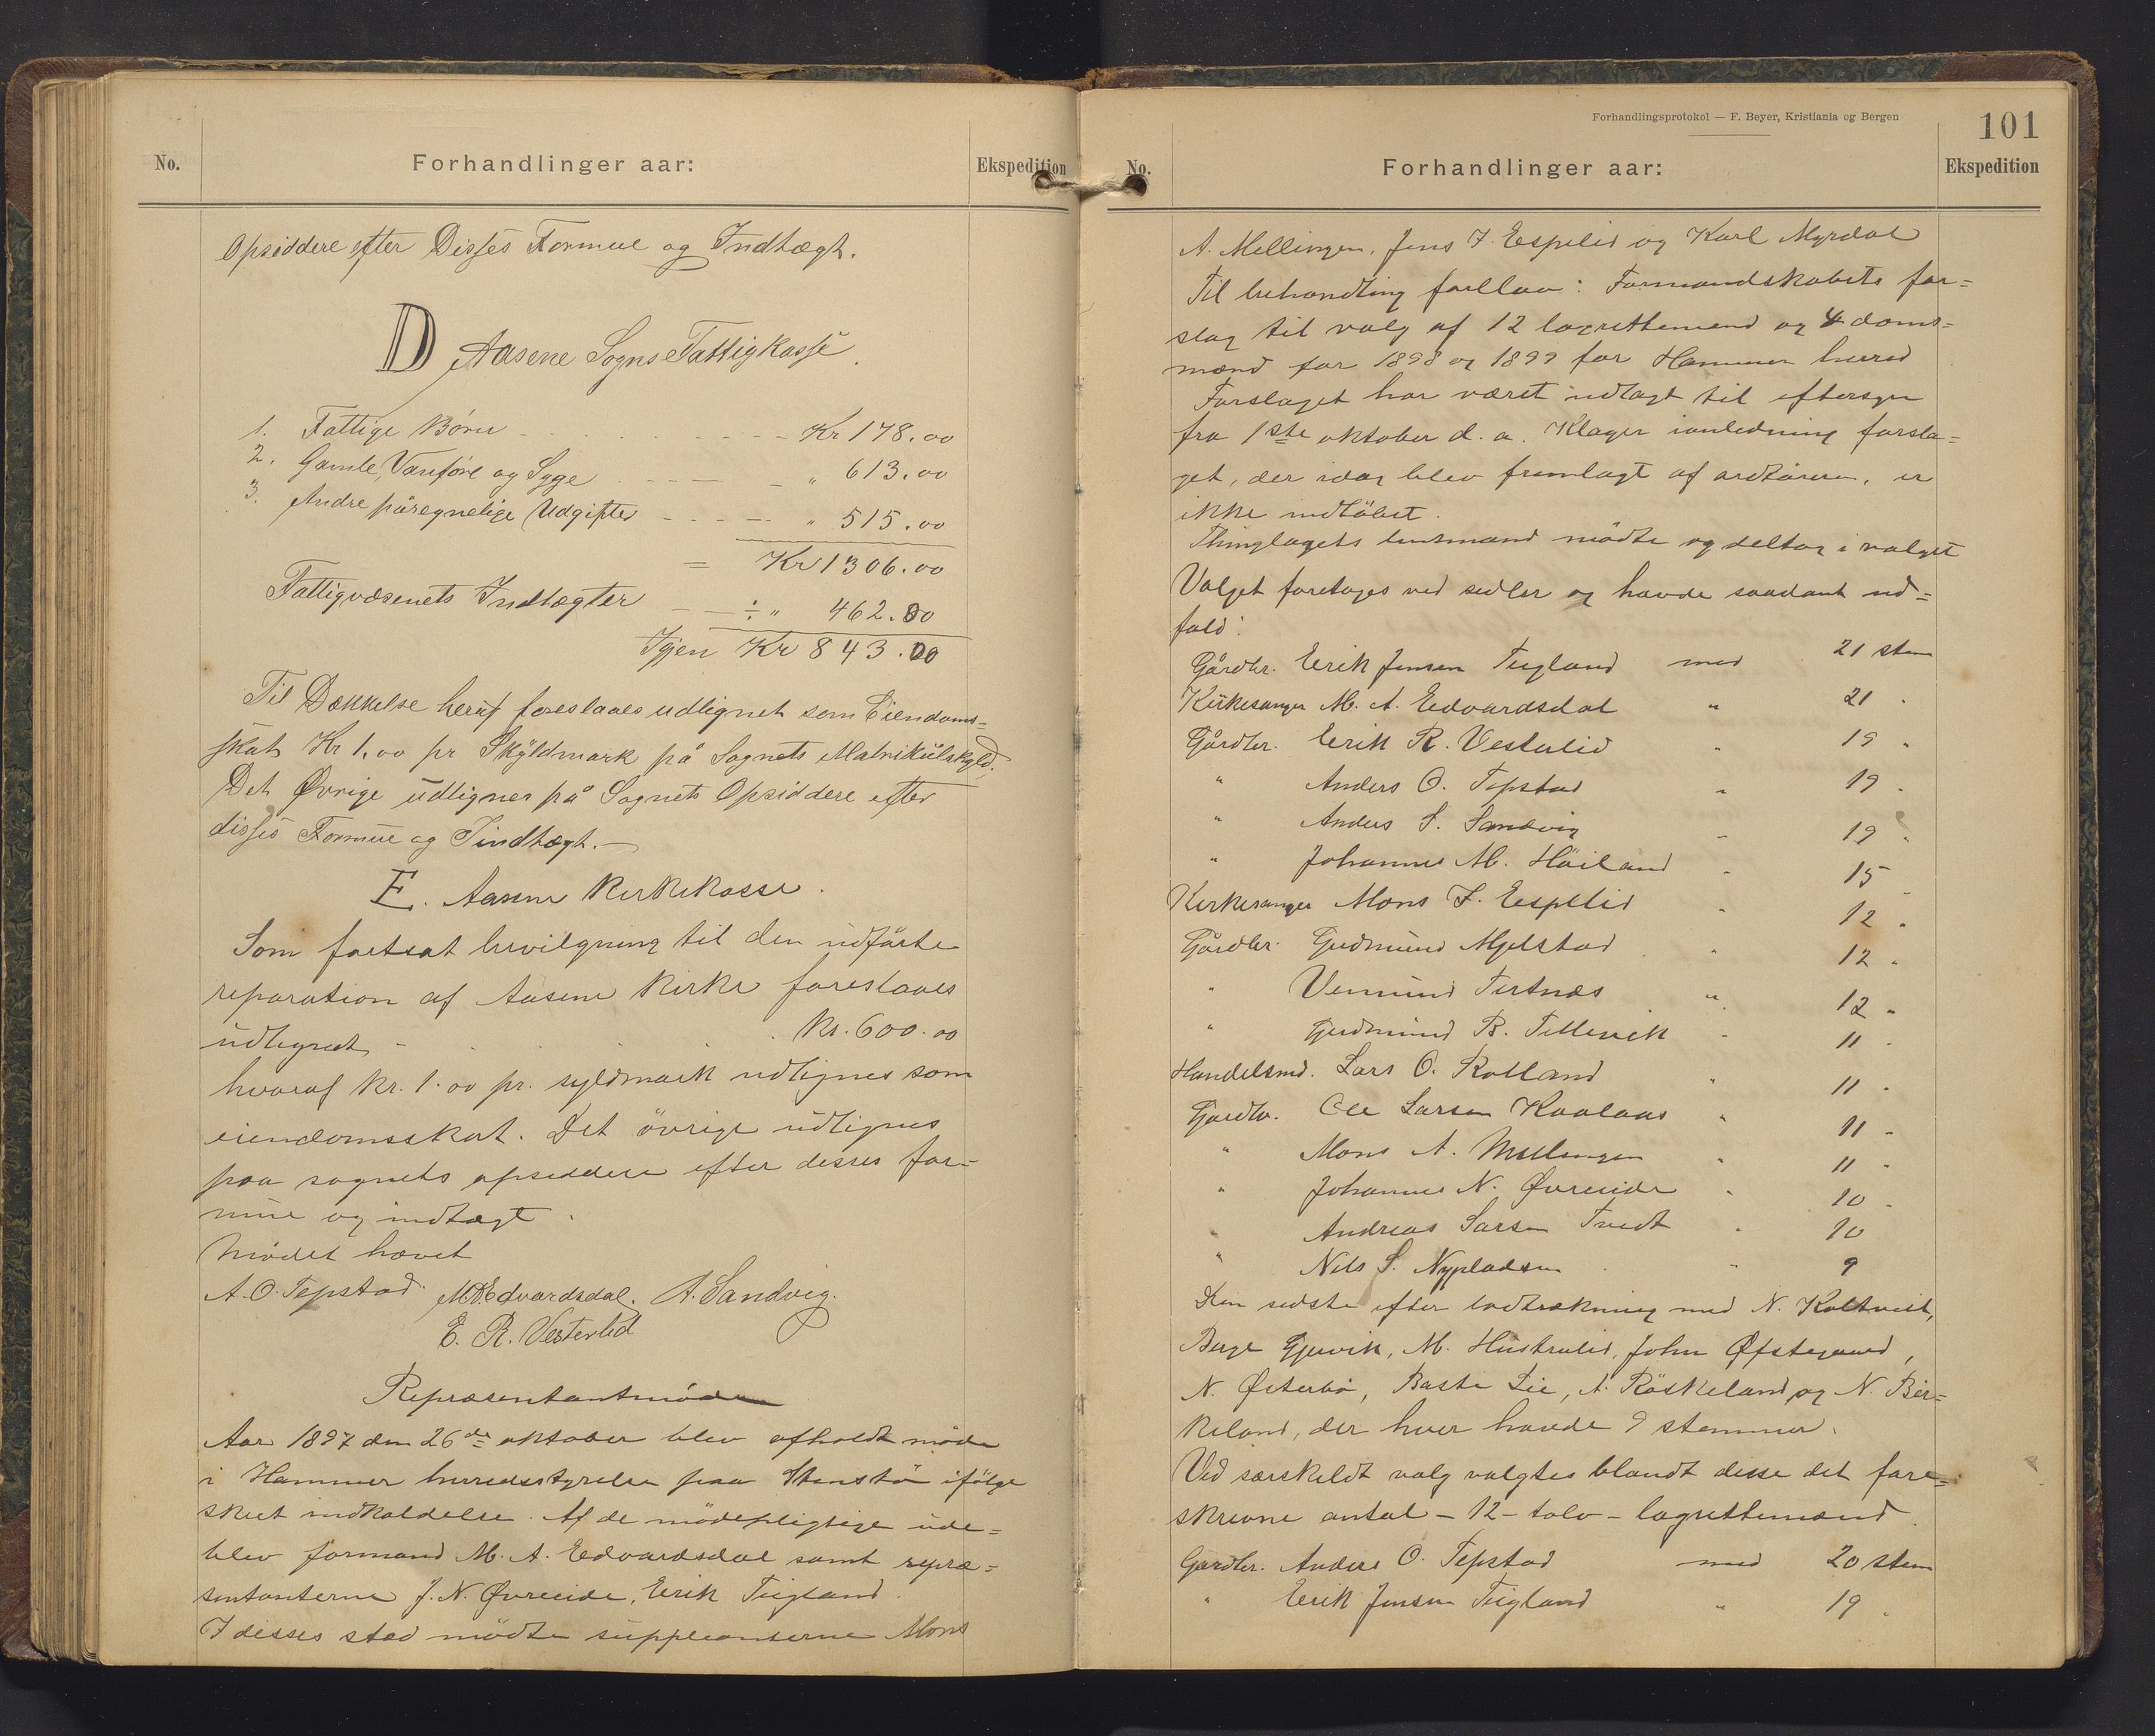 No.
Forhandlinger aar:
Ekspedition
Opsiddere efter Disses Formue og Indtægt.
D Aasene Sogns Fattigkasse.
1. Fattige Børn - - - - Kr 178.00
2. Gamle, Vanføre og Syge - - - - " 613.00
3. Andre påregnelige Udgifter - - - - " 515.00
= Kr 1306.00
Fattigvæsenets Indtægter - - ÷ " 462.00
Igjen Kr 843.00
Til Dækkelse heraf foreslaaes udlignet som Eiendoms=
skat Kr 1.00 pr Skyldmark på Sognets Matrikulskyld.
Det Øvrige udlignes på Sognets Opsiddere efter
disses Formue og Indtægt.—
E. Aasene Kirkekasse.
Som fortsat bevilgning til den udførte
reparation af Aasene Kirke foreslaaes
udlignet - . . . . kr. 600.00
hvoraf kr. 1.00 pr. skyldmark udlignes som
eiendomsskat. Det øvrige udlignes
paa sognets opsiddere efter disses for=
mue og indtægt.
Mødet hævet
A. O. Tepstad. M A Edvardsdal. A. Sandvig.
E. R. Vesterlid
Repræsentantmøde
Aar 1897 den 26de oktober blev afholdt møde
i Hammer herredsstyrelse paa Stenstø ifølge
skeet indkaldelse. Af de mødepligtige ude=
blev formand M. A. Edvardsdal samt repræ=
sentanterne J. N. Øvreeide, Erik Tugland.
I disses sted mødte suppleanterne Mons
Forhandlingsprotokol — F. Beyer, Kristiania og Bergen
101
No.
Forhandlinger aar:
Ekspedition
A. Mellingen, Jens J. Espelid og Karl Myrdal
Til behandling forelaa: Formandskabets for=
slag til valg af 12 lagrettemænd og 4 doms=
mænd for 1898 og 1899 for Hammer herred
Forslaget har været udlagt til eftersyn
fra 1ste oktober d. a. Klager ianledning forsla=
get, der idag blev fremlagt af ordføreren, er
ikke indløbet.
Thinglagets lensmand mødte og deltog i valget
Valget foretoges ved sedler og havde saadant ud=
fald:
Gårdbr. Erik Jensen Tugland med 21 stem
Kirkesanger M. A. Edvardsdal " 21 "
Gårdbr. Erik R. Vesterlid " 19 "
" Anders O. Tepstad " 19 "
" Anders S. Sandvig " 19 "
" Johannes M. Høiland " 15 "
Kirkesanger Mons J. Espelid " 12 "
Gårdbr. Gudmund Mjelstad " 12 "
" Vemund Tertnæs " 12 "
" Gudmund B. Tellevik " 11 "
Handelsmd. Lars O. Rolland " 11 "
Gårdbr. Ole Larsen Kaalaas " 11 "
" Mons A. Mellingen " 11 "
" Johannes N. Øvreeide " 10 "
" Andreas Larsen Tvedt " 10
" Nils S. Nypladsen " 9
Den sidste efter lodtrækning med N. Koltveit,
Berge Gjervik, M. Hustrulid, John Øfstegaard,
N. Østerbø, Baste Lie, A. Røskeland og N. Bir=
keland, der hver havde 9 stemmer.
Ved særskildt valg valgtes blandt disse det fore=
skrevne antal - 12 - tolv - lagrettemænd.
Gårdbr. Anders O. Tepstad med 20 stem
" Erik Jensen Tugland " 19 "